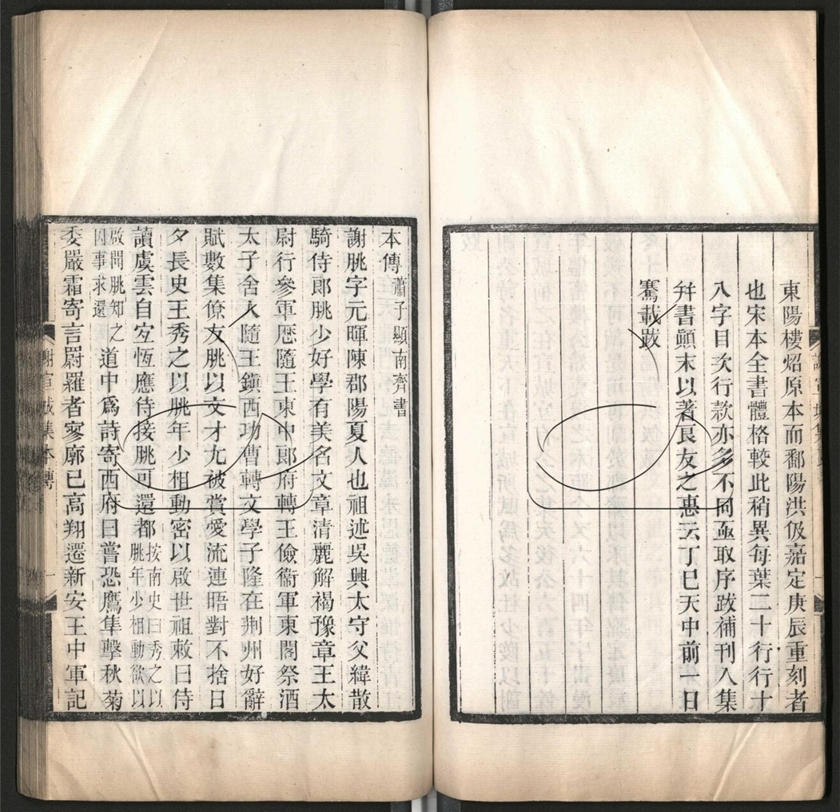 東陽樓炤原本而鄱陽洪伋嘉定庚辰重刻者
也宋本全書體格較此稍異每葉二十行行十
八字目次行款亦多不同亟取序跋補刊入集
幷書顚末以著良友之惠云丁巳天中前一日
騫載跋
本傳蕭子顯南齊書
謝朓字元暉陳郡陽夏人也祖述吳興太守父緯散
騎侍郎朓少好學有美名文章清麗解褐豫章王太
尉行參軍歷隨王東中郎府轉王儉衞軍東閤祭酒
太子舍人隨王鎭西功曹轉文學子隆在荆州好辭
賦數集僚友朓以文才尤被賞愛流連晤對不捨日
夕長史王秀之以朓年少相動密以啟世祖敕曰侍
讀虞雲自宜恆應侍接朓可還都按南史曰秀之以朓年少相動欲以
啟聞朓知之因事求還道中爲詩寄西府曰嘗恐鷹隼擊秋菊
委嚴霜寄言罻羅者寥廓已高翔遷新安王中軍記
謝宣城集本傳
一